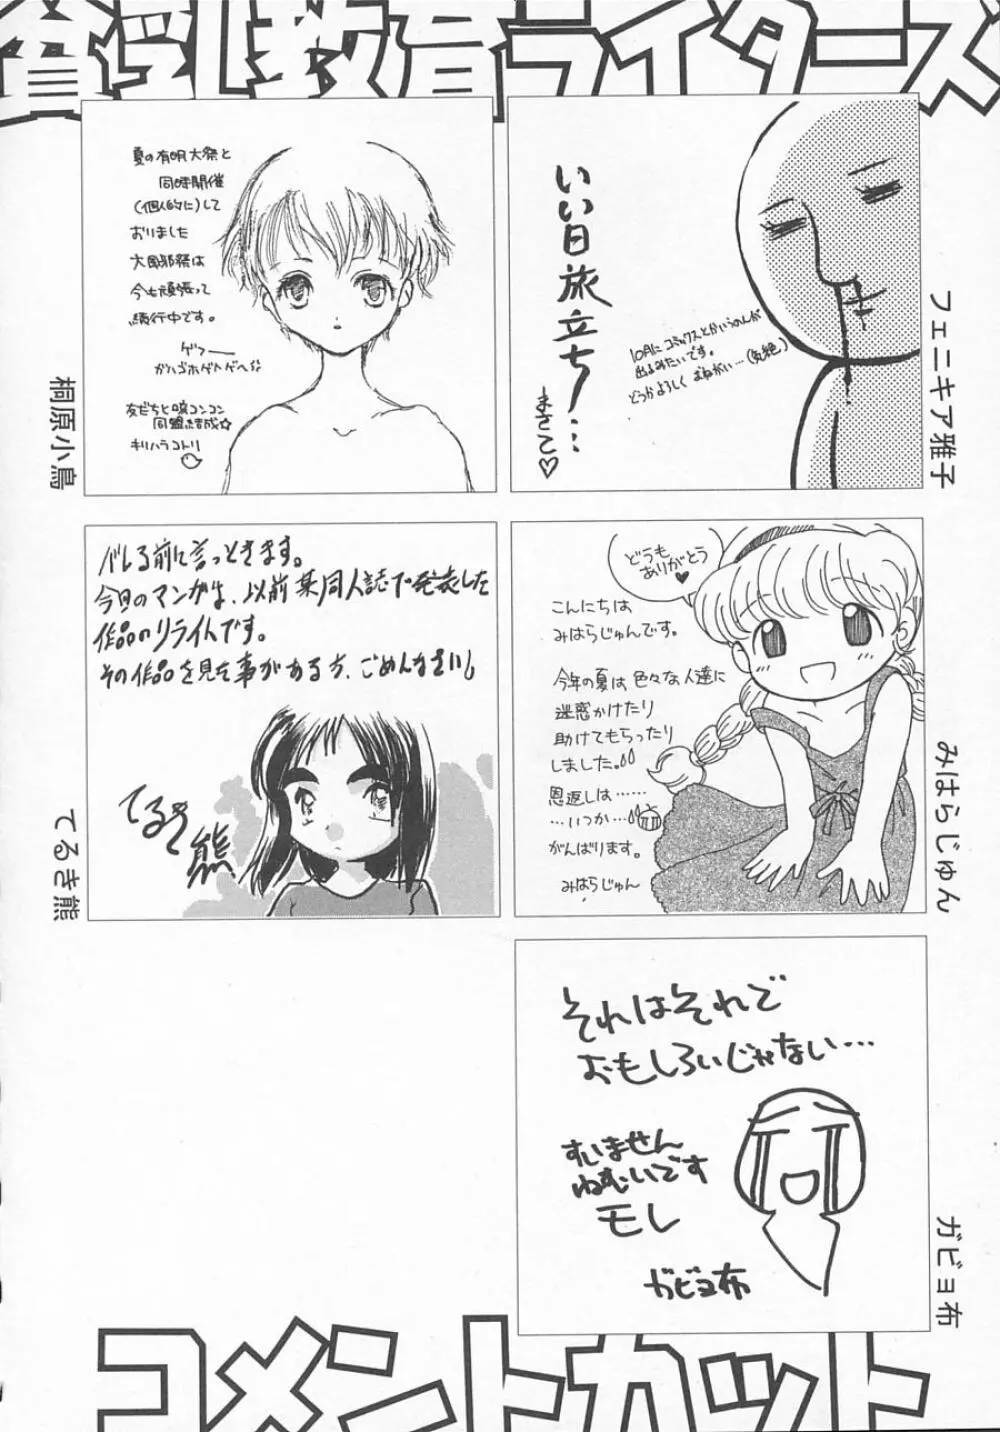 貧乳教育ライターズ
いい日旅立ち…
まさこ♡
10月にコミックスとかいうのんが
出るみたいです。
どうかよろしくおねがい…(気絶)
フェニキア雅子
夏の有明大祭と
同時開催
(個人的に)して
おりました
大風邪祭は
今も頑張って
続行中です。
ゲフー
ガハゴホゲヘゲヘ
友だちと咳コンコン
同盟結成☆
キリハラコトリ
桐原小鳥
どうも
ありがとう
♥
こんにちは
みはらじゅんです。
今年の夏は色々な人達に
迷惑かけたり
助けてもらったり
しました。
恩返しは……
…いつか…
がんばります。
みはらじゅん
みはらじゅん
バレる前に言っときます。
今日のマンガは、以前某同人誌で発表した
作品のリライトです。
その作品を見た事がある方、ごめんなさい。
てるき熊
てるき熊
それはそれで
おもしろいじゃない…
すいません
ねむいです
モレ
ガビョ布
ガビョ布
コメントカット